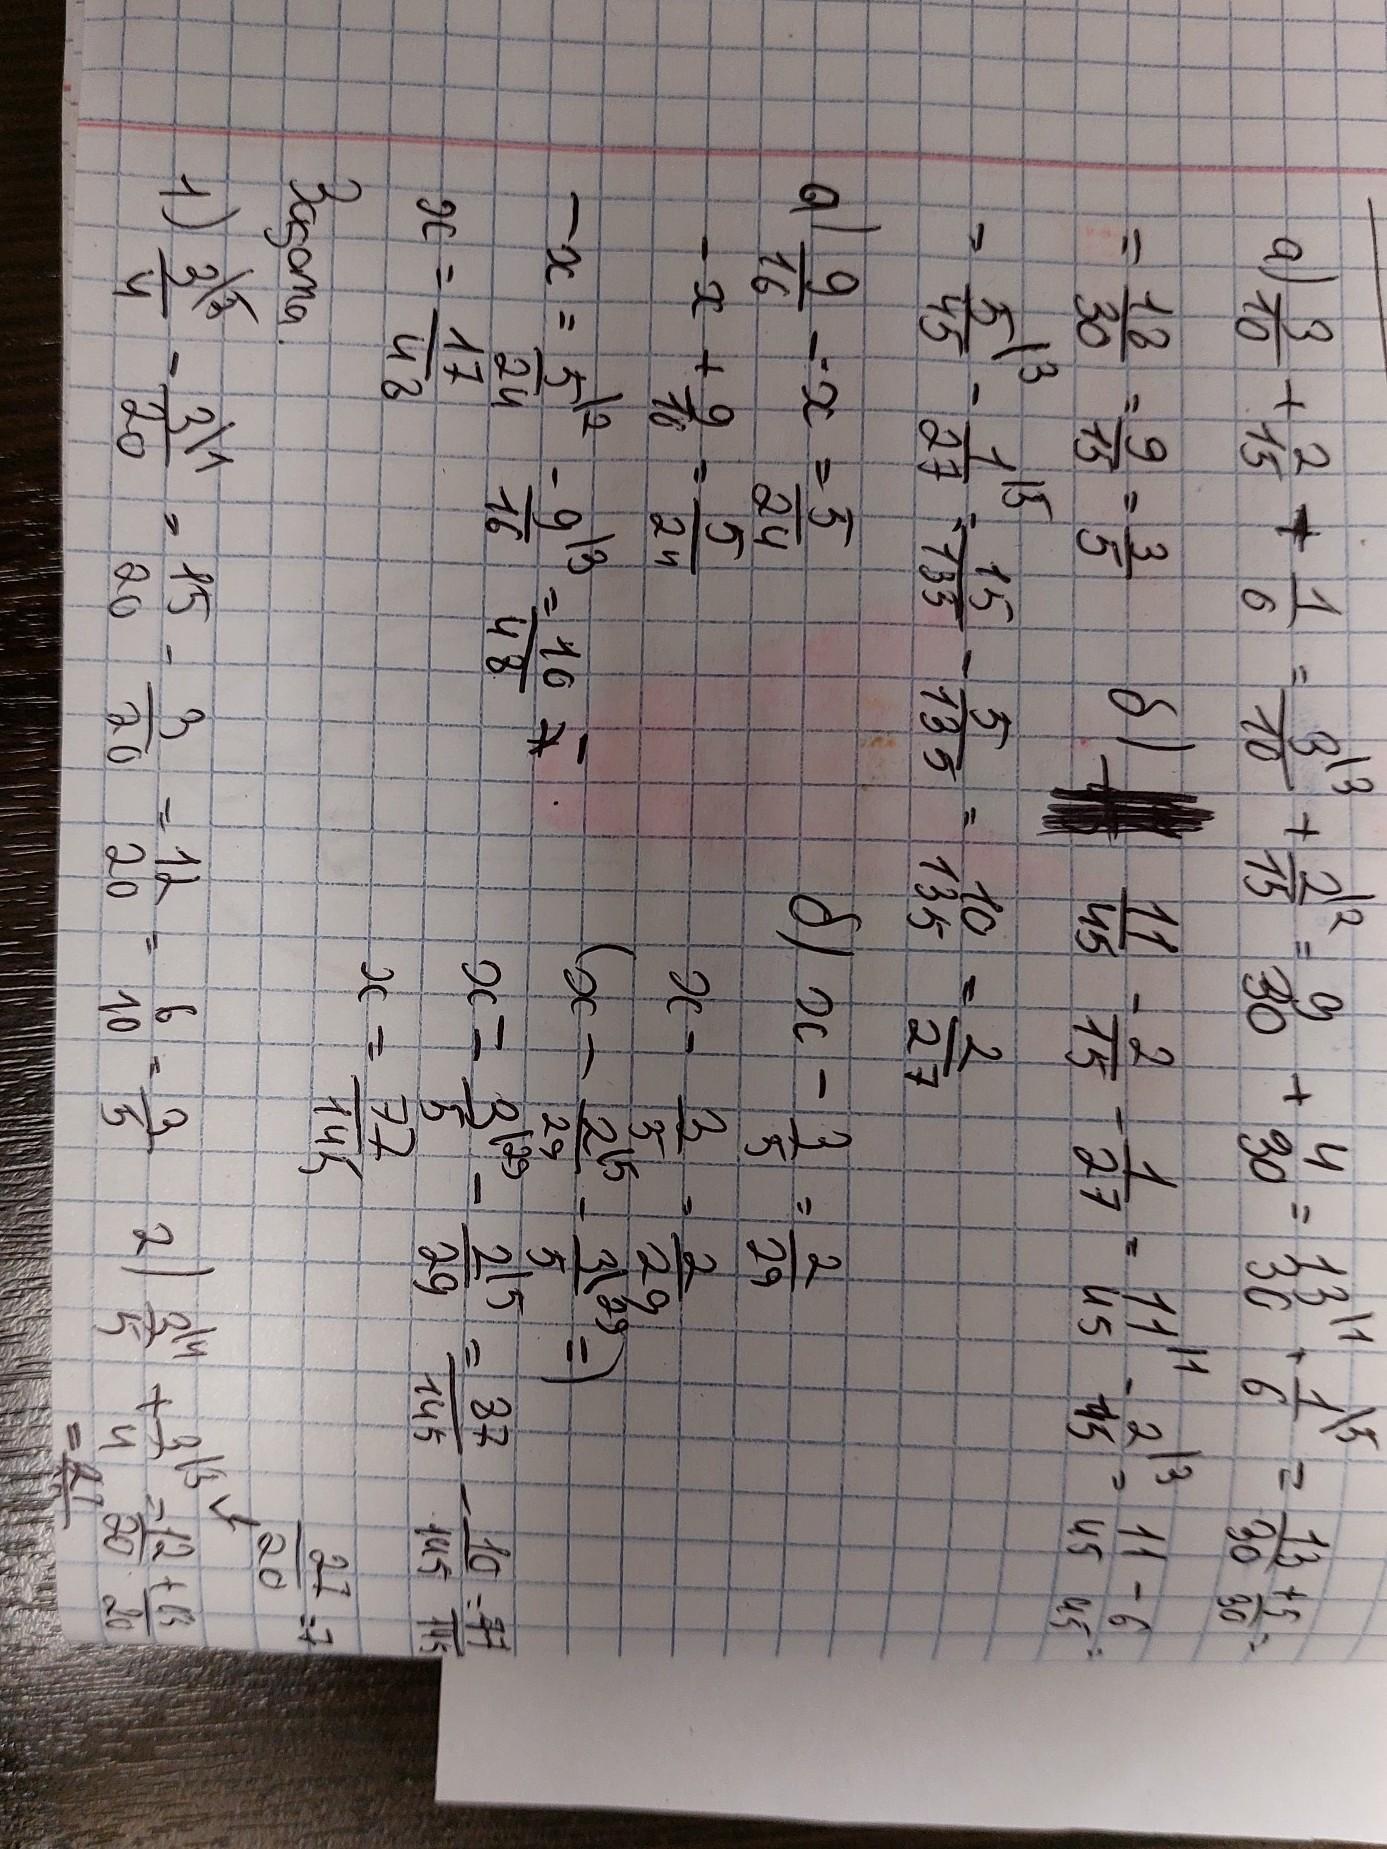 а) 3/10 + 2/15 + 1/6 = 3\3/10 + 2\2/15 = 9/30 + 4/30 = 13\1/30 + 1\5/6 = 13/30 + 5/30 =
= 18/30 = 9/15 = 3/5 б) 11/45 - 2/15 - 1/27 = 11\1/45 - 2\3/15 = 11/45 - 6/45 =
= 5\3/45 - 1\5/27 = 15/135 - 5/135 = 10/135 = 2/27
а) 9/16 - x = 5/24 б) x - 3/5 = 2/29
- x + 9/16 = 5/24 x - 3/5 = 2/29
- x = 5\2/24 - 9\3/16 = 10/48 - (x - 2\5/29 - 3\29/5 =)
x = 17/48 x = 3\29/5 - 2\5/29 = 87/145 - 10/145 = 77/145
x = 77/145
Задача.
1) 3\5/4 - 3\1/20 = 15/20 - 3/20 = 12/20 = 6/10 = 3/5 2) 3\4/5 + 3\5/4 = 12/20 + 15/20
27/20 = 7